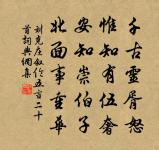 千古靈胥怒
惟知有伍奢
安知崇伯子
北面事重華
劉克庄叙倫五言二十
首詞典網集